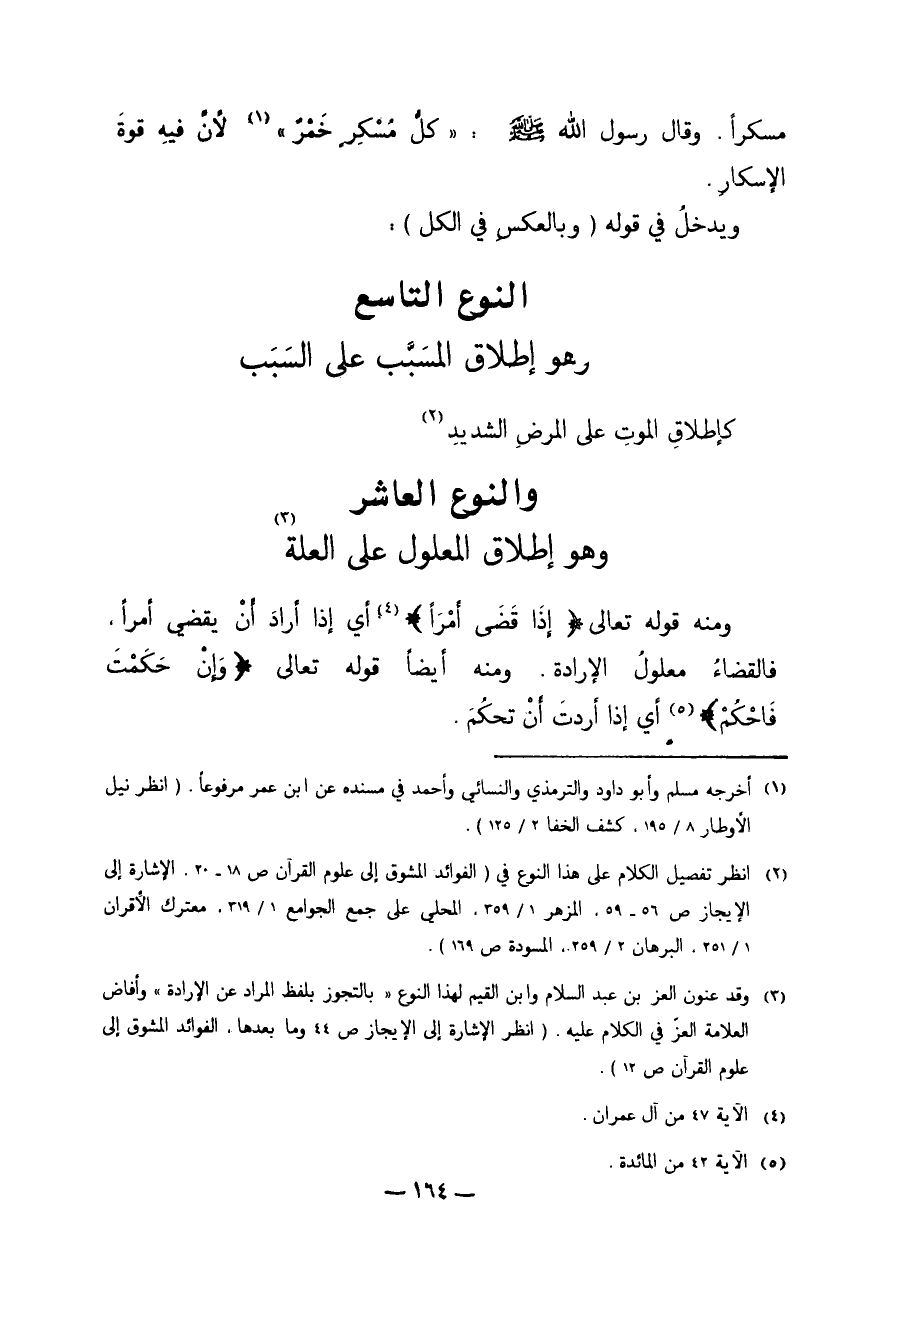 مسكراً . وقال رسول الله ﷺ : « كلُّ مُسْكِرٍ خَمْرٌ »(١) لأنَّ فيهِ قوةَ
الإسكارِ .
ويدخلُ في قوله ( وبالعكسِ في الكل ) :
النوع التاسع
رهو إطلاق المسَبَّب على السَبَب
كإطلاقِ الموتِ على المرضِ الشديدِ(٢)
والنوع العاشر
وهو إطلاق المعلول على العلة(٣)
ومنه قوله تعالى ﴿ إِذَا قَضَى أَمْرَاً ﴾(٤) أي إذا أرادَ أنْ يقضي أمراً ،
فالقضاءُ معلولُ الإرادة . ومنه أيضاً قوله تعالى ﴿ وَإِنْ حَكَمْتَ
فَاحْكُمْ ﴾(٥) أي إذا أردتَ أنْ تحكُمَ .
(١) أخرجه مسلم وأبو داود والترمذي والنسائي وأحمد في مسنده عن ابن عمر مرفوعاً . ( انظر نيل
الأوطار ٨ / ١٩٥ ، كشف الخفا ٢ / ١٢٥ ) .
(٢) انظر تفصيل الكلام على هذا النوع في ( الفوائد المشوق إلى علوم القرآن ص ١٨ ـ ٢٠ . الإشارة إلى
الإيجاز ص ٥٦ ـ ٥٩ ، المزهر ١ / ٣٥٩ ، المحلي على جمع الجوامع ١ / ٣١٩ ، معترك الأقران
١ / ٢٥١ ، البرهان ٢ / ٢٥٩ ، المسودة ص ١٦٩ ) .
(٣) وقد عنون العز بن عبد السلام وابن القيم لهذا النوع « بالتجوز بلفظ المراد عن الإرادة » وأفاض
العلامة العزّ في الكلام عليه . ( انظر الإشارة إلى الإيجاز ص ٤٤ وما بعدها ، الفوائد المشوق إلى
علوم القرآن ص ١٢ ) .
(٤) الآية ٤٧ من آل عمران .
(٥) الآية ٤٢ من المائدة .
— ١٦٤ —